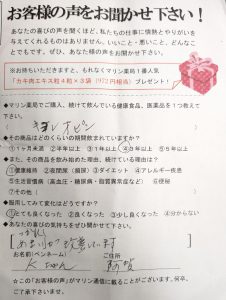 お客様の声をお聞かせ下さい！
あなたの喜びの声を聞くほど、私たちの仕事に情熱とやりがいを
与えてくれるものはありません。いいこと・悪いこと、どんなこ
とでもです。ぜひ、あなたの声をお聞かせ下さい。
※お持ちいただきますと、もれなくマリン薬局1番人気
「カキ肉エキス粒4粒×3袋（972円相当）」プレゼント！
◆マリン薬局でご購入、続けて飲んでいる健康食品、医薬品を1つ教えて
下さい。
◆その商品はどのくらいの期間飲まれていますか？
①1ヶ月未満 ②半年 ③1年 ④3年以上 ⑤5年以上
◆また、その商品を飲み始めた理由、続けている理由は？
①健康維持 ②夜間尿（頻尿） ③ダイエット ④アレルギー疾患
⑤生活習慣病（高血圧・糖尿病・脂質異常症など） ⑥便秘
⑦その他
◆服用してみて変化はどうですか？
①とても良くなった ②良くなった ③少し良くなった ④分からない
◆あなたの喜びの気持ちをぜひお聞かせ下さい。
お名前（ペンネーム） ご住所
Kちゃん
☆この「お客様の声」がマリン通信に載ることがございます。何卒、
ご了承下さいませ。